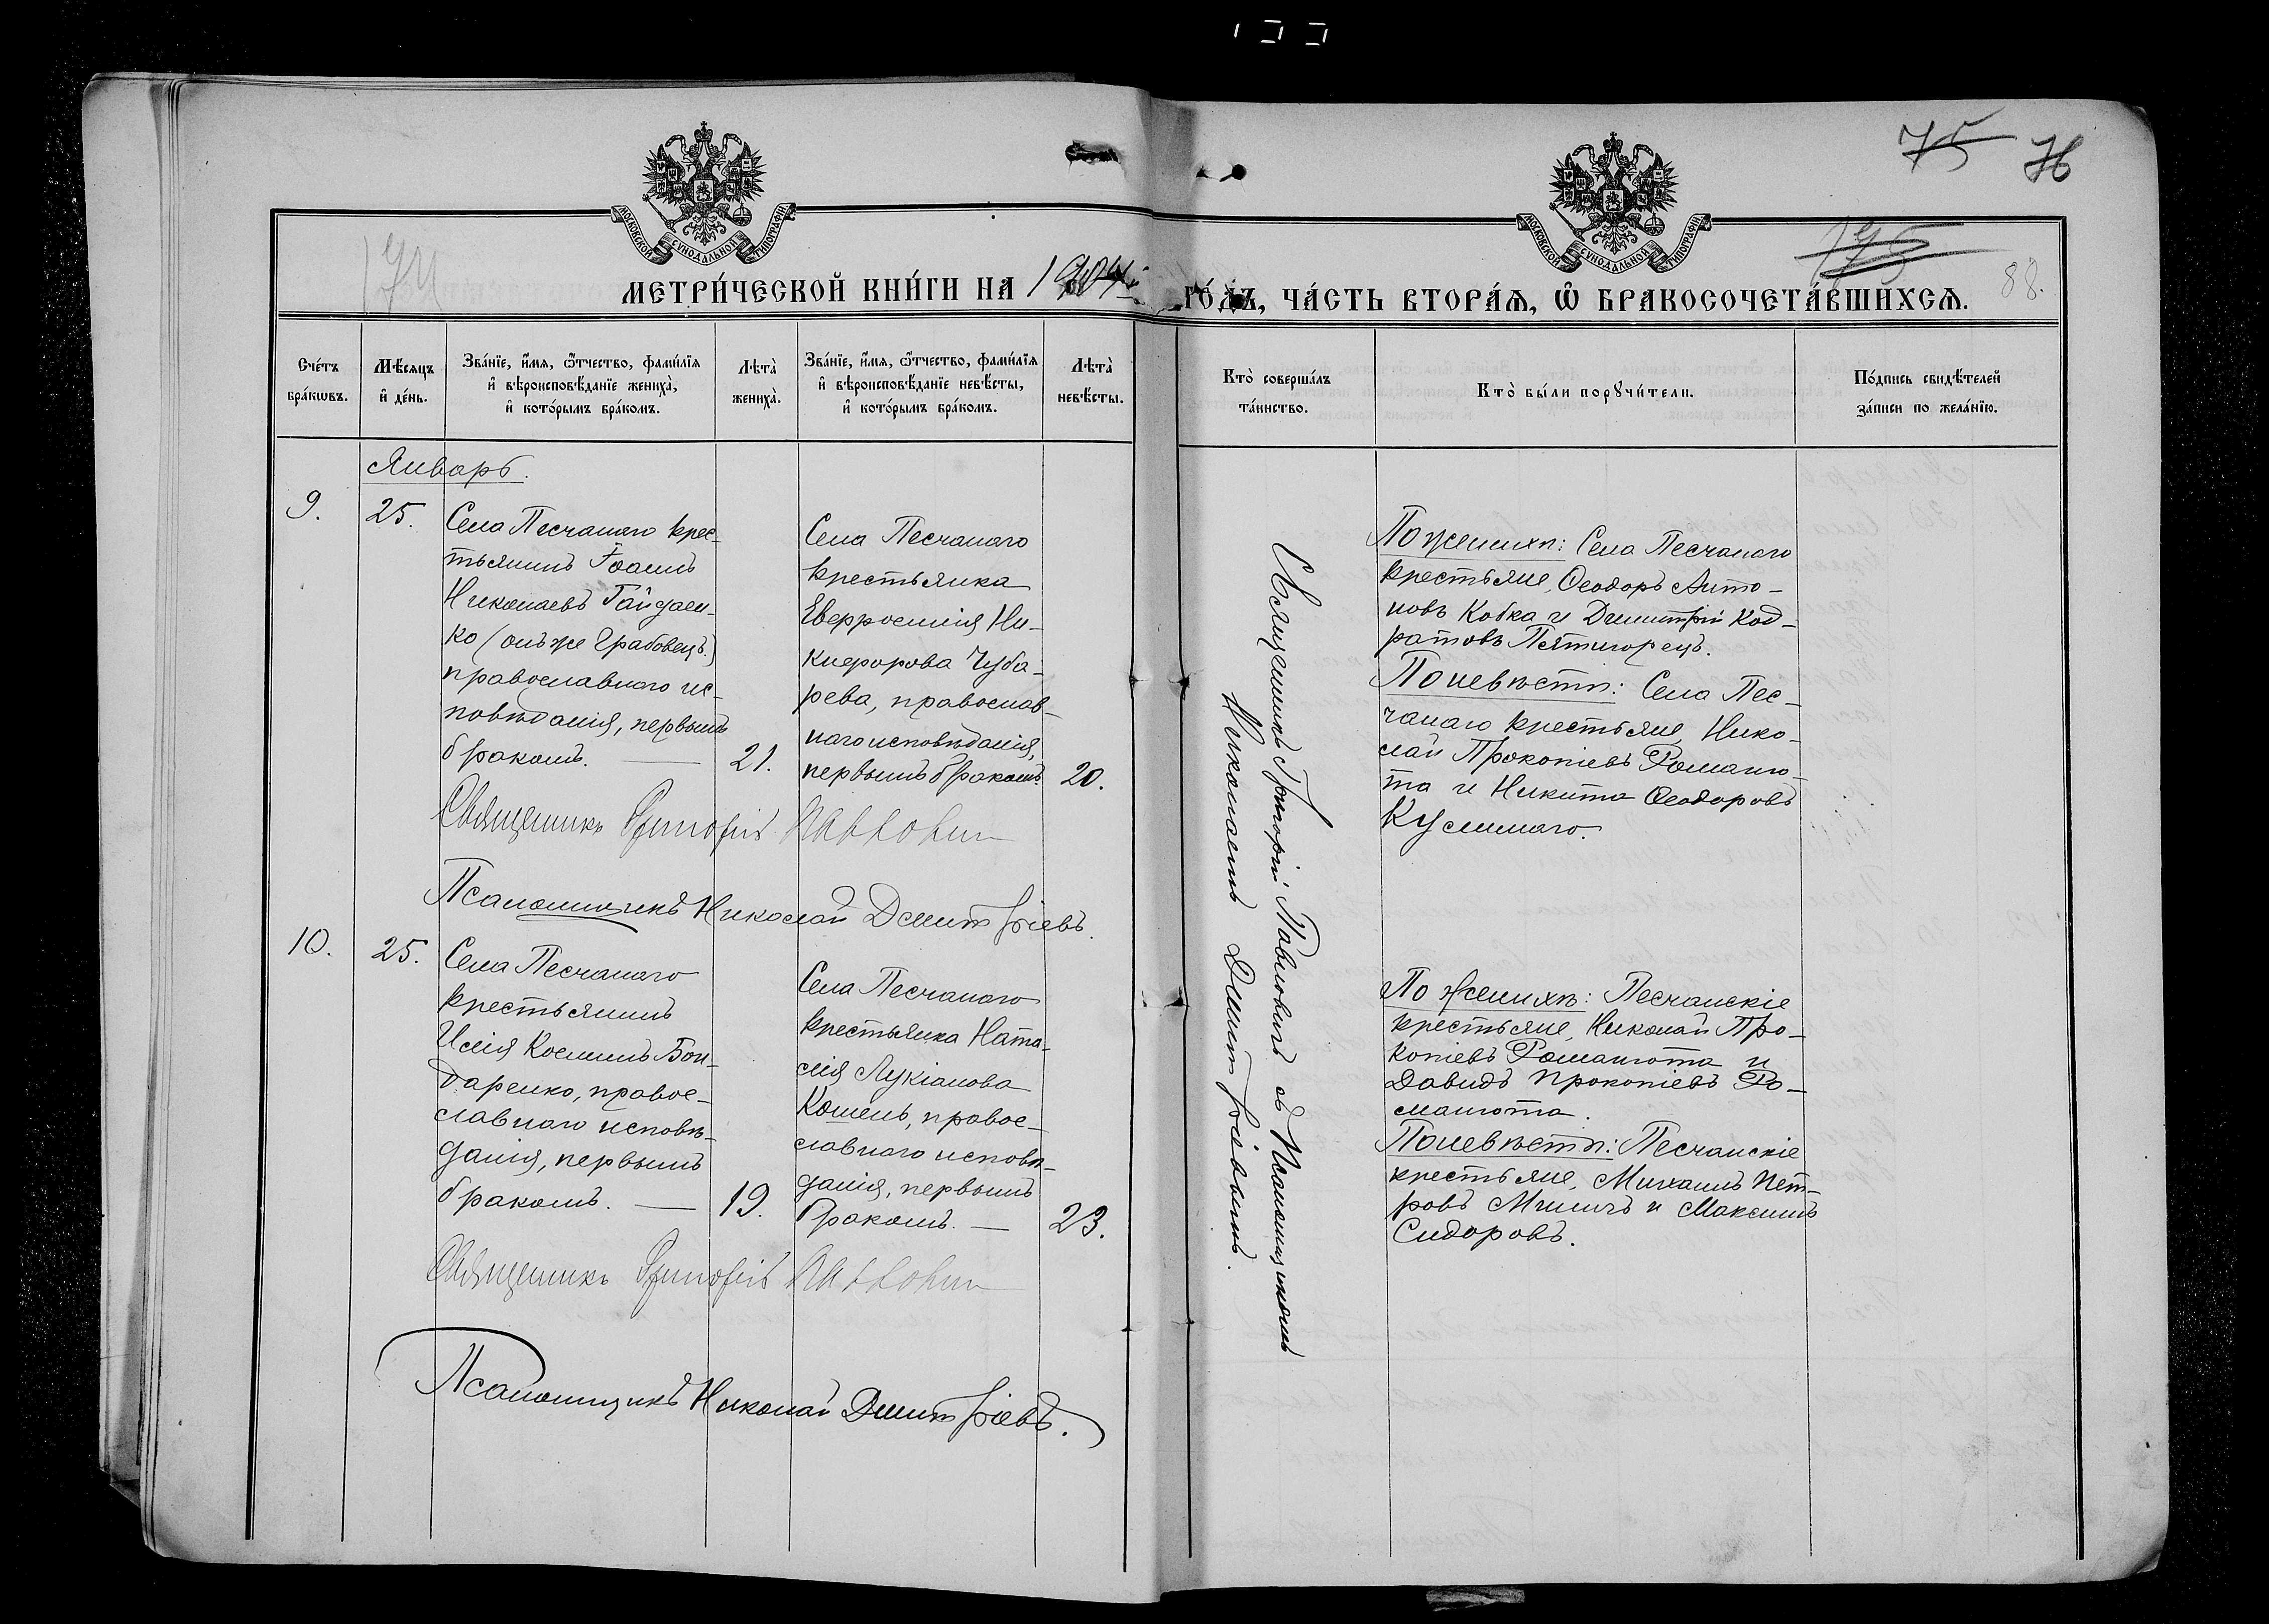 75 76
174
175
88.
МОСКОВСКОЙ СѴНОДАЛЬНОЙ ТИПОГРАФІИ
МОСКОВСКОЙ СѴНОДАЛЬНОЙ ТИПОГРАФІИ
МЕТРИ́ЧЕСКОЙ КНИ́ГИ НА 1904 ГО́ДЪ, ЧА́СТЬ ВТОРА́Ѧ, Ѡ҆ БРАКОСОЧЕТА́ВШИХСѦ.
Сче́тъ
бра́кѡвъ.
Мѣ́сѧцъ
и҆ де́нь.
Зва́нїе, и҆́мѧ, ѻ҆́тчество, фами́лїѧ
и҆ вѣроисповѣ́данїе жениха̀,
и҆ кото́рымъ бра́комъ.
Лѣта̀
жениха̀.
Зва́нїе, и҆́мѧ, ѻ҆́тчество, фами́лїѧ
и҆ вѣроисповѣ́данїе невѣ́сты,
и҆ кото́рымъ бра́комъ.
Лѣта̀
невѣ́сты.
Кто̀ соверша́лъ
та́инство.
Кто̀ бы́ли порꙋчи́тели.
По́дпись свидѣ́телей
за́писи по жела́нїю.
Январь.
9.
25.
Села Песчанаго крес-
тьянинъ Іоаннъ
Николаевъ Гайдаен-
ко (онъ же Грабовецъ.)
православнаго ис-
повѣданія, первымъ
бракомъ. —
21.
Села Песчанаго
крестьянка
Евфросинія Ни-
кифорова Чуба-
рева, православ-
наго исповѣданія,
первымъ бракомъ.
20.
Священникъ Григорій Павловичъ съ Псаломщикомъ
Николаемъ Дмитріевымъ.
По женихѣ: Села Песчанаго
крестьяне, Ѳеодоръ Анто-
новъ Кобка и Димитрій Код-
ратовъ Пятигорецъ.
По невѣстѣ: Села Пес-
чанаго крестьяне, Нико-
лай Прокопіевъ Романю-
та и Никита Ѳеодоровъ
Кислинаго.
Священникъ Григорій Павловичъ
Псаломщикъ Николай Дмитріевъ.
10.
25.
Села Песчанаго
крестьянинъ
Илія Косминъ Бон-
даренко, правос-
лавнаго исповѣ-
данія, первымъ
бракомъ. —
19.
Села Песчанаго
крестьянка Ната-
лія Лукіанова
Кошель, правос-
лавнаго исповѣ-
данія, первымъ
бракомъ. —
23.
По женихѣ: Песчанскіе
крестьяне, Николай Про-
копіевъ Романюта и
Давидъ Прокопіевъ Ро-
манюта.
По невѣстѣ: Песчанскіе
крестьяне, Михаилъ Пет-
ровъ и Максимъ
Сидоровъ.
Священникъ Григорій Павловичъ
Псаломщикъ Николай Дмитріевъ.